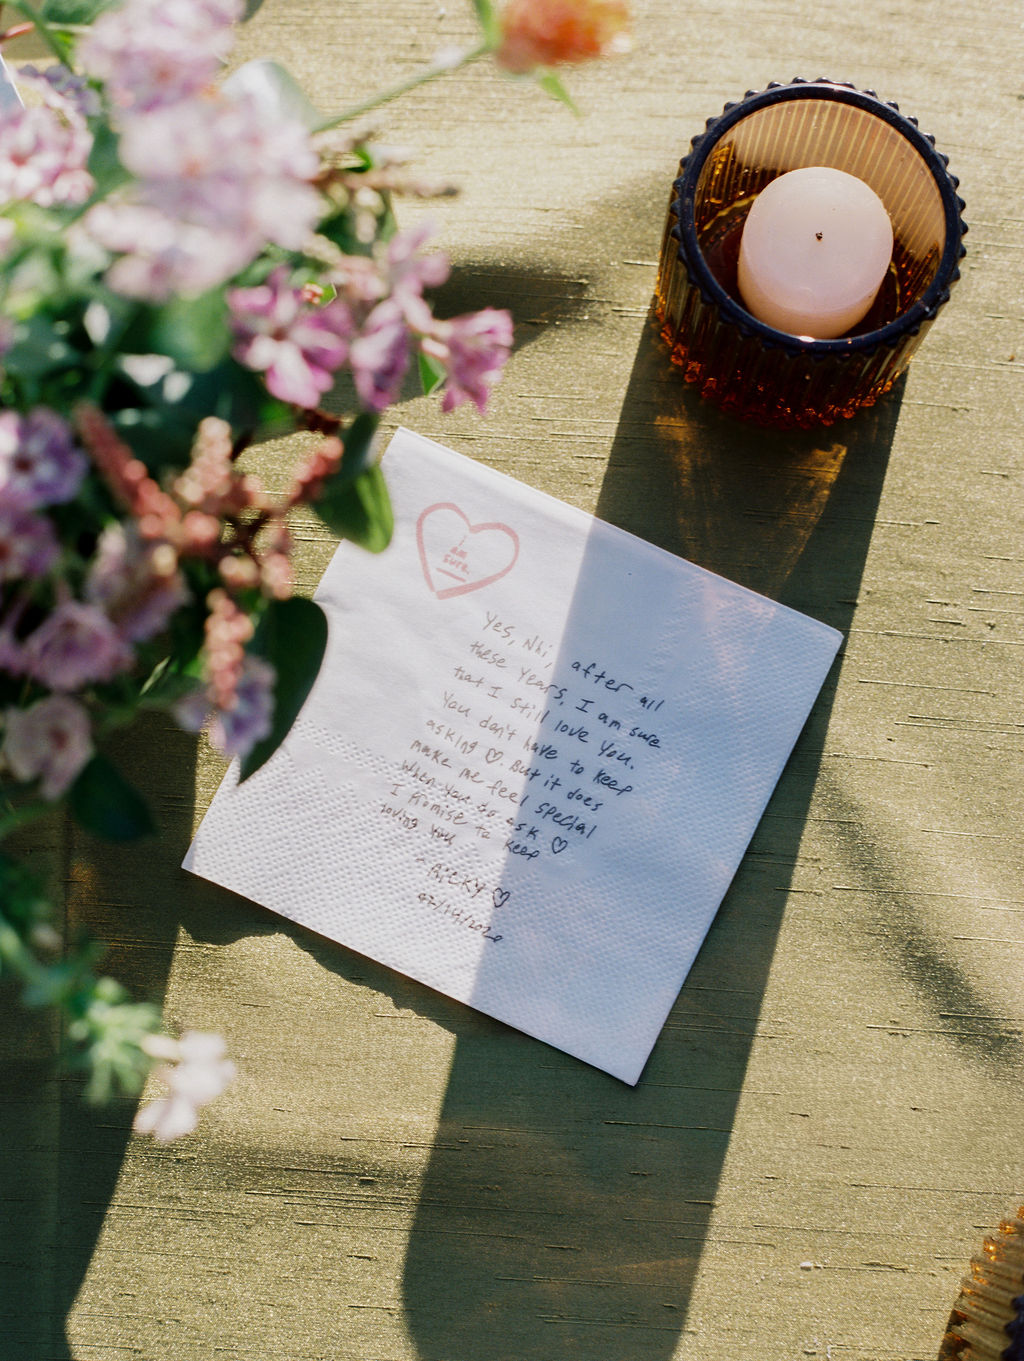 I
AM
SURE.
Yes, Nhi, after all
these years, I am sure
that I still love you.
You don't have to keep
asking ♡. But it does
make me feel special
when you do ask ♡
I Promise to keep
loving you
- Ricky ♡
02/14/2020